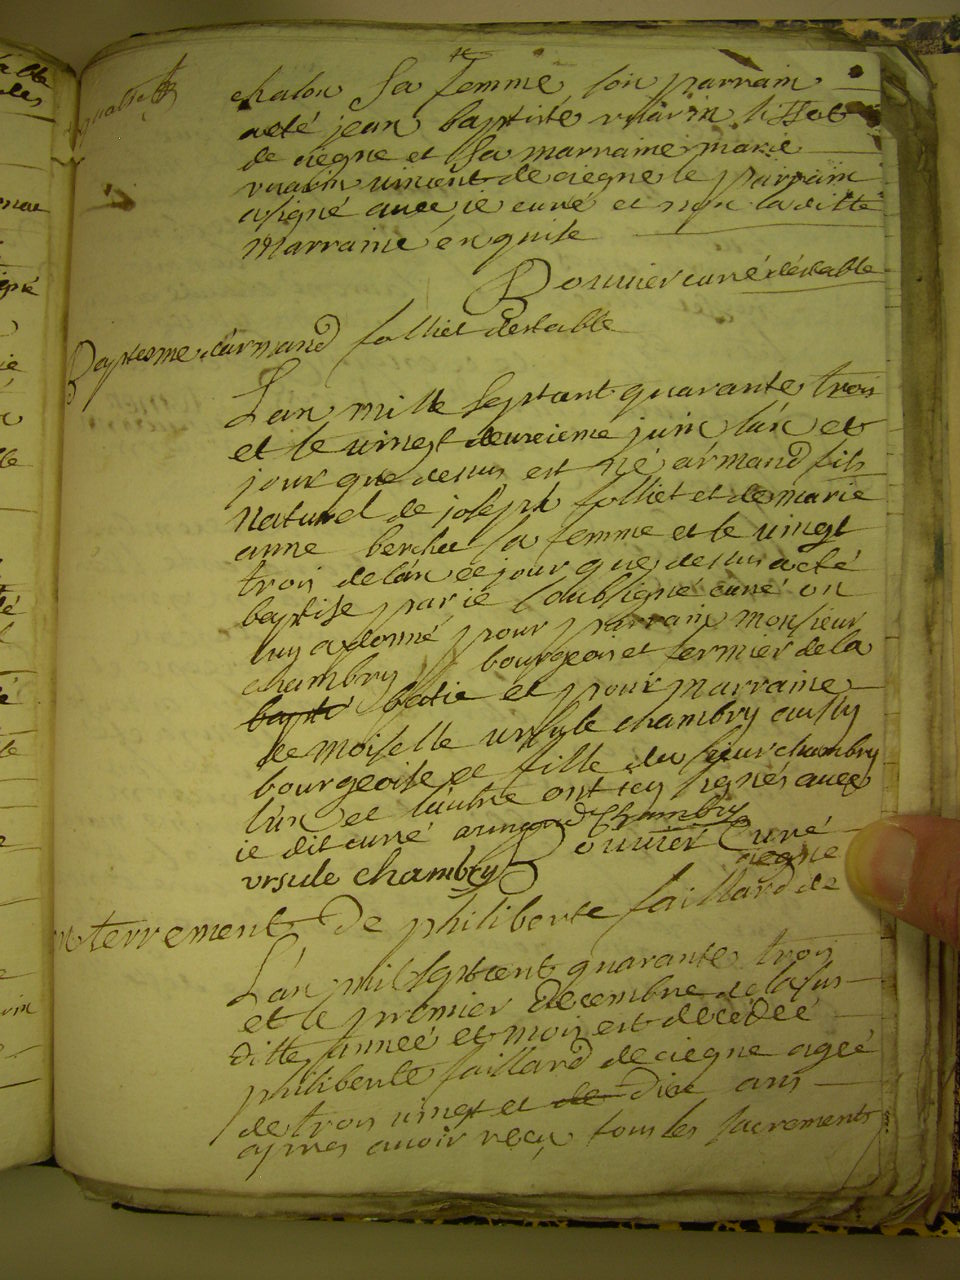 chalon Sa femme son parrain
aeté jean baptiste vuarin
de ciegne et Sa marraine marie
vuarin vincent de ciegne le parrain
a signé avec je curé et non la ditte
Marraine enquise
Bouvier curé déstable
Baptesme d'armand folliet destable
L'an mille Septcent quarante trois
et le vingt deuxieme juin l'an et
jour que dessus est né armand fils
Naturel de joseph folliet et de marie
anne berchet sa femme et le vingt
trois de l'an et jour que dessus a eté
baptise par je soubsigné curé on
luy a donné pour parrain monsieur
chambry bourgeois et fermier de la
bapté batie et pour marraine
de moiselle ursule chambry aussy
bourgeoise et fille du sieur chambry
l'un et l'autre ont icy signés avec
je dit curé armand Chambry
ursule chambry Bouvier Curé
ciegne
enterrement De philiberte faillard de
L'an mil Septcent quarante trois
et le premier Decembre de la sus
ditte année et mois est décédée
philiberte faillard de ciegne agée
de trois vingt et de Dix ans
apres avoir reçu tous les sacrements